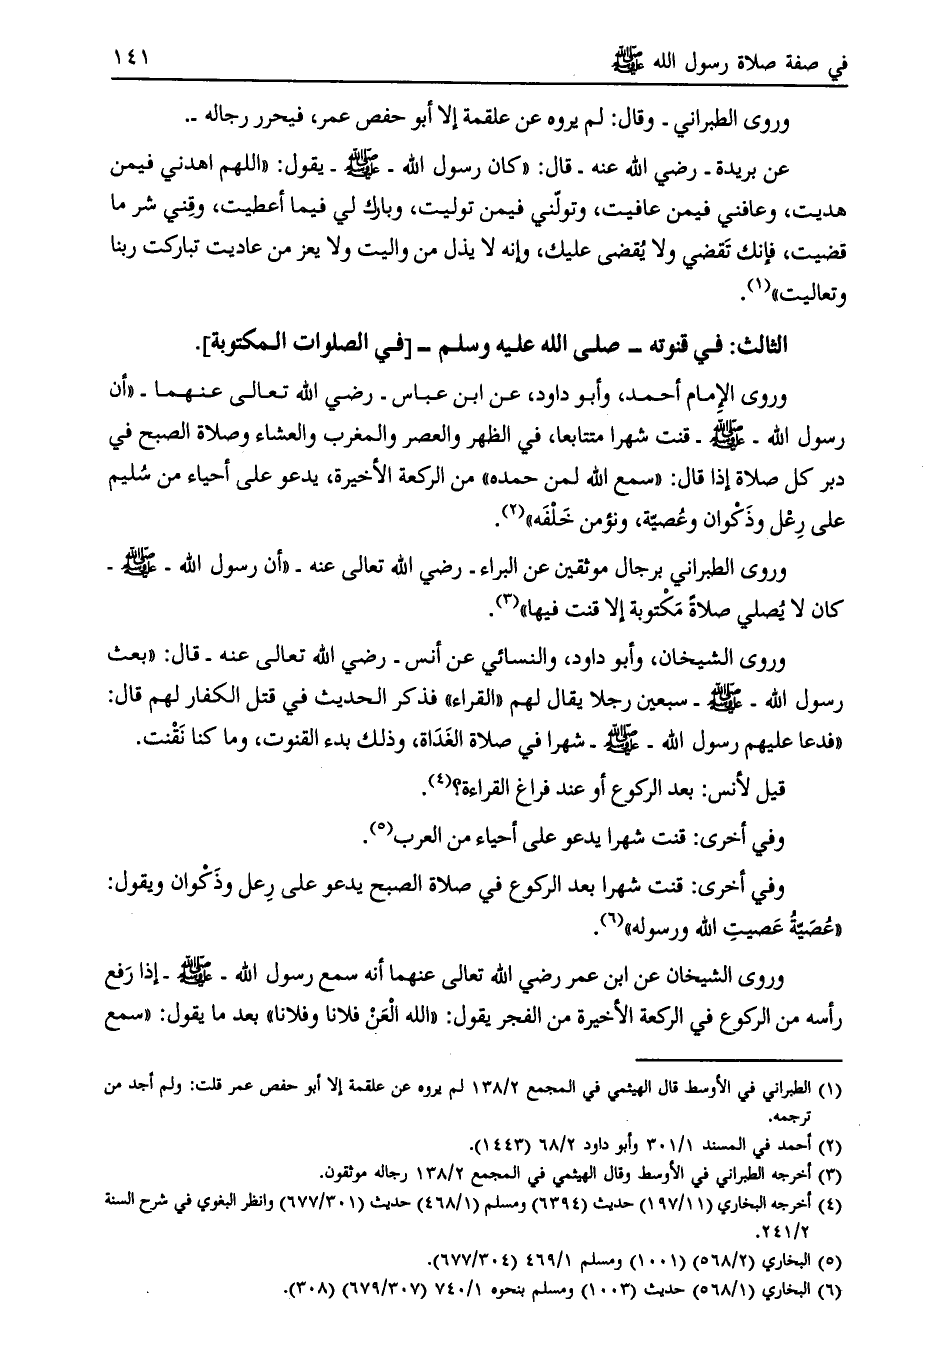 في صفة صلاة رسول الله ﷺ ١٤١
وروى الطبراني ـ وقال: لم يروه عن علقمة إلا أبو حفص عمر، فيحرر رجاله ـ.
عن بريدة ـ رضي الله عنه ـ قال: «كان رسول الله ـ ﷺ ـ يقول: «اللهم اهدني فيمن
هديت، وعافني فيمن عافيت، وتولّني فيمن توليت، وبارك لي فيما أعطيت، وقِني شر ما
قضيت، فإنك تَقضي ولا يُقضى عليك، وإنه لا يذل من واليت ولا يعز من عاديت تباركت ربنا
وتعاليت»(١).
الثالث: في قنوته ـ صلى الله عليه وسلم ـ [في الصلوات المكتوبة].
وروى الإِمام أحمد، وأبو داود، عن ابن عباس ـ رضي الله تعالى عنهما ـ «أن
رسول الله ـ ﷺ ـ قنت شهرا متتابعا، في الظهر والعصر والمغرب والعشاء وصلاة الصبح في
دبر كل صلاة إذا قال: «سمع الله لمن حمده» من الركعة الأخيرة، يدعو على أحياء من سُليم
على رِعْل وذَكْوان وعُصيّة، ونؤمن خَلْفَه»(٢).
وروى الطبراني برجال موثقين عن البراء ـ رضي الله تعالى عنه ـ «أن رسول الله ـ ﷺ ـ
كان لا يُصلي صلاةً مَكْتوبة إلا قنت فيها»(٣).
وروى الشيخان، وأبو داود، والنسائي عن أنس ـ رضي الله تعالى عنه ـ قال: «بعث
رسول الله ـ ﷺ ـ سبعين رجلا يقال لهم «القراء» فذكر الحديث في قتل الكفار لهم قال:
«فدعا عليهم رسول الله ـ ﷺ ـ شهرا في صلاة الغَدَاة، وذلك بدء القنوت، وما كنا نَقْنت.
قيل لأنس: بعد الركوع أو عند فراغ القراءة؟(٤).
وفي أخرى: قنت شهرا يدعو على أحياء من العرب(٥).
وفي أخرى: قنت شهرا بعد الركوع في صلاة الصبح يدعو على رِعل وذَكْوان ويقول:
«عُصَيّةُ عَصيتِ الله ورسوله»(٦).
وروى الشيخان عن ابن عمر رضي الله تعالى عنهما أنه سمع رسول الله ـ ﷺ ـ إذا رَفع
رأسه من الركوع في الركعة الأخيرة من الفجر يقول: «الله الْعَنْ فلانا وفلانا» بعد ما يقول: «سمع
(١) الطبراني في الأوسط قال الهيثمي في المجمع ١٣٨/٢ لم يروه عن علقمة إلا أبو حفص عمر قلت: ولم أجد من
ترجمه.
(٢) أحمد في المسند ٣٠١/١ وأبو داود ٦٨/٢ (١٤٤٣).
(٣) أخرجه الطبراني في الأوسط وقال الهيثمي في المجمع ١٣٨/٢ رجاله موثقون.
(٤) أخرجه البخاري (١٩٧/١١) حديث (٦٣٩٤) ومسلم (٤٦٨/١) حديث (٦٧٧/٣٠١) وانظر البغوي في شرح السنة
٢٤١/٢.
(٥) البخاري (٥٦٨/٢) (١٠٠١) ومسلم ٤٦٩/١ (٦٧٧/٣٠٤).
(٦) البخاري (٥٦٨/١) حديث (١٠٠٣) ومسلم بنحوه ٧٤٠/١ (٦٧٩/٣٠٧) (٣٠٨).